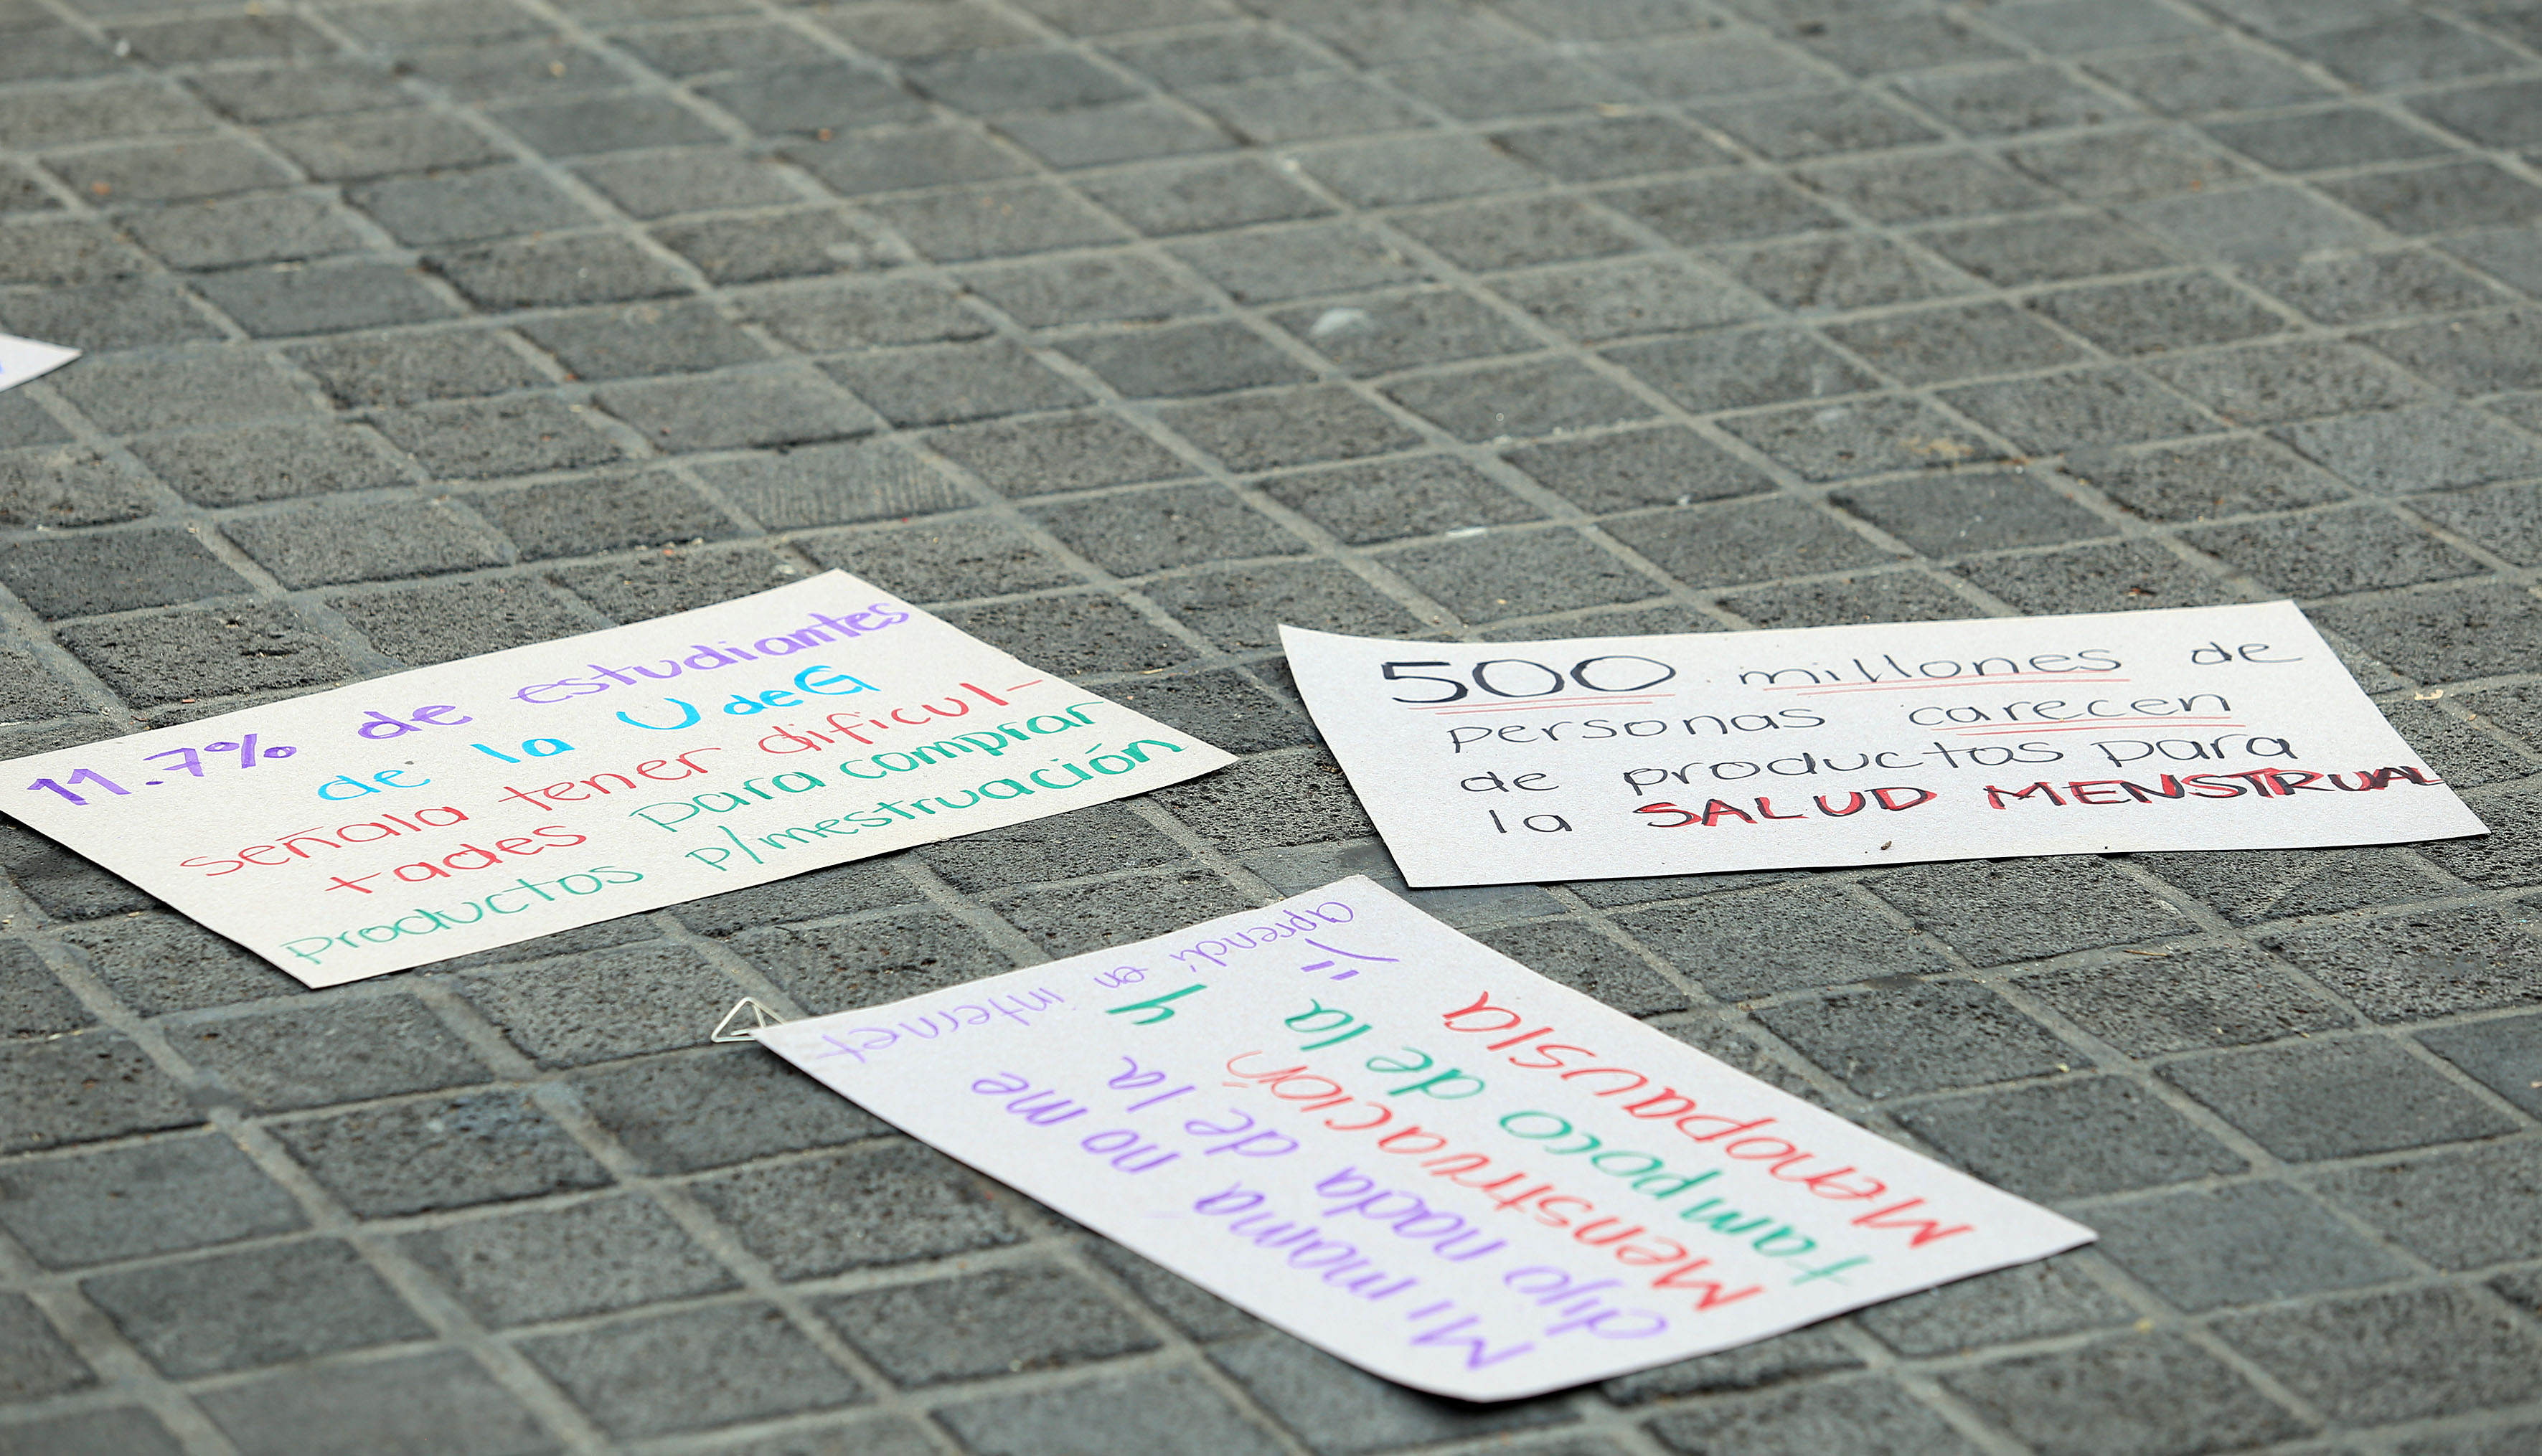 11.7% de estudiantes
de la UdeG
señala tener dificul-
tades para comprar
productos p/mestruación
500 millones de
personas carecen
de productos para
la SALUD MENSTRUAL
Mi mamá no me
dijo nada de la
Menstruación y
tampoco de la
Menopausia
aprendí en internet